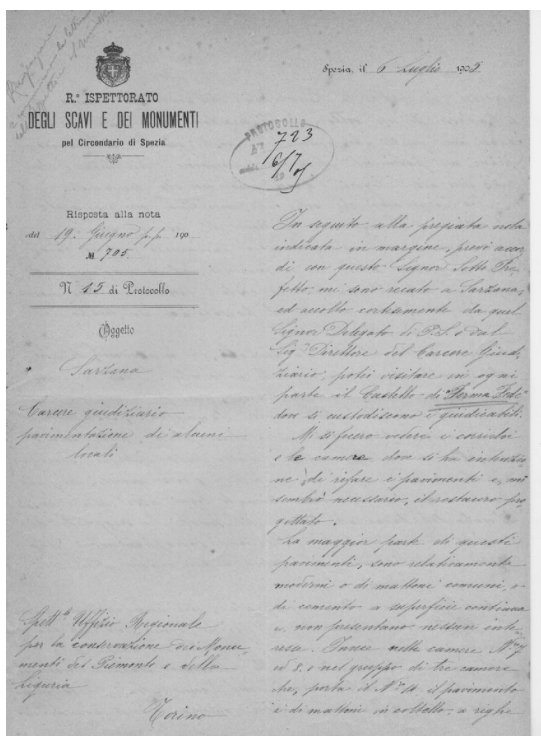 Spezia, il 6 Luglio 1905
R.° ISPETTORATO
DEGLI SCAVI E DEI MONUMENTI
pel Circondario di Spezia
PROTOCOLLO
N° 723
6/7 05
Risposta alla nota
del 19. Giugno p.p. 190
N. 705.
N 15 di Protocollo
Oggetto
Sarzana
Carcere giudiziario
pavimentazione di alcuni
locali
Spett.le Uffizio Regionale
per la conservazione dei Monu,
menti del Piemonte e della
Liguria
Torino
In seguito alla pregiata nota
indicata in margine, previ accor
di con questo Signor Sotto Pre
fetto; mi sono recato a Sarzana,
ed accolto cortesemente da quel
Signor Delegato di P.S. e dal
Sig. Direttore del Carcere Giudi
ziario, potei visitare in ogni
parte il Castello di "Ferma Fede"
dove si custodiscono i giudicabili.
Mi si fecero vedere i corridoi
e le camere dove si ha intenzio
ne di rifare i pavimenti e, mi
sembrò necessario, il restauro pro
gettato.
La maggior parte di questi
pavimenti, sono relativamente
moderni o di mattoni comuni, o
di cemento a superficie continua
e, non presentano nessun inte,
resse. Invece nelle camere N.
ed 8. e nel gruppo di tre camere
che, porta il N. 14. il pavimento
è di mattoni in coltello, a righe